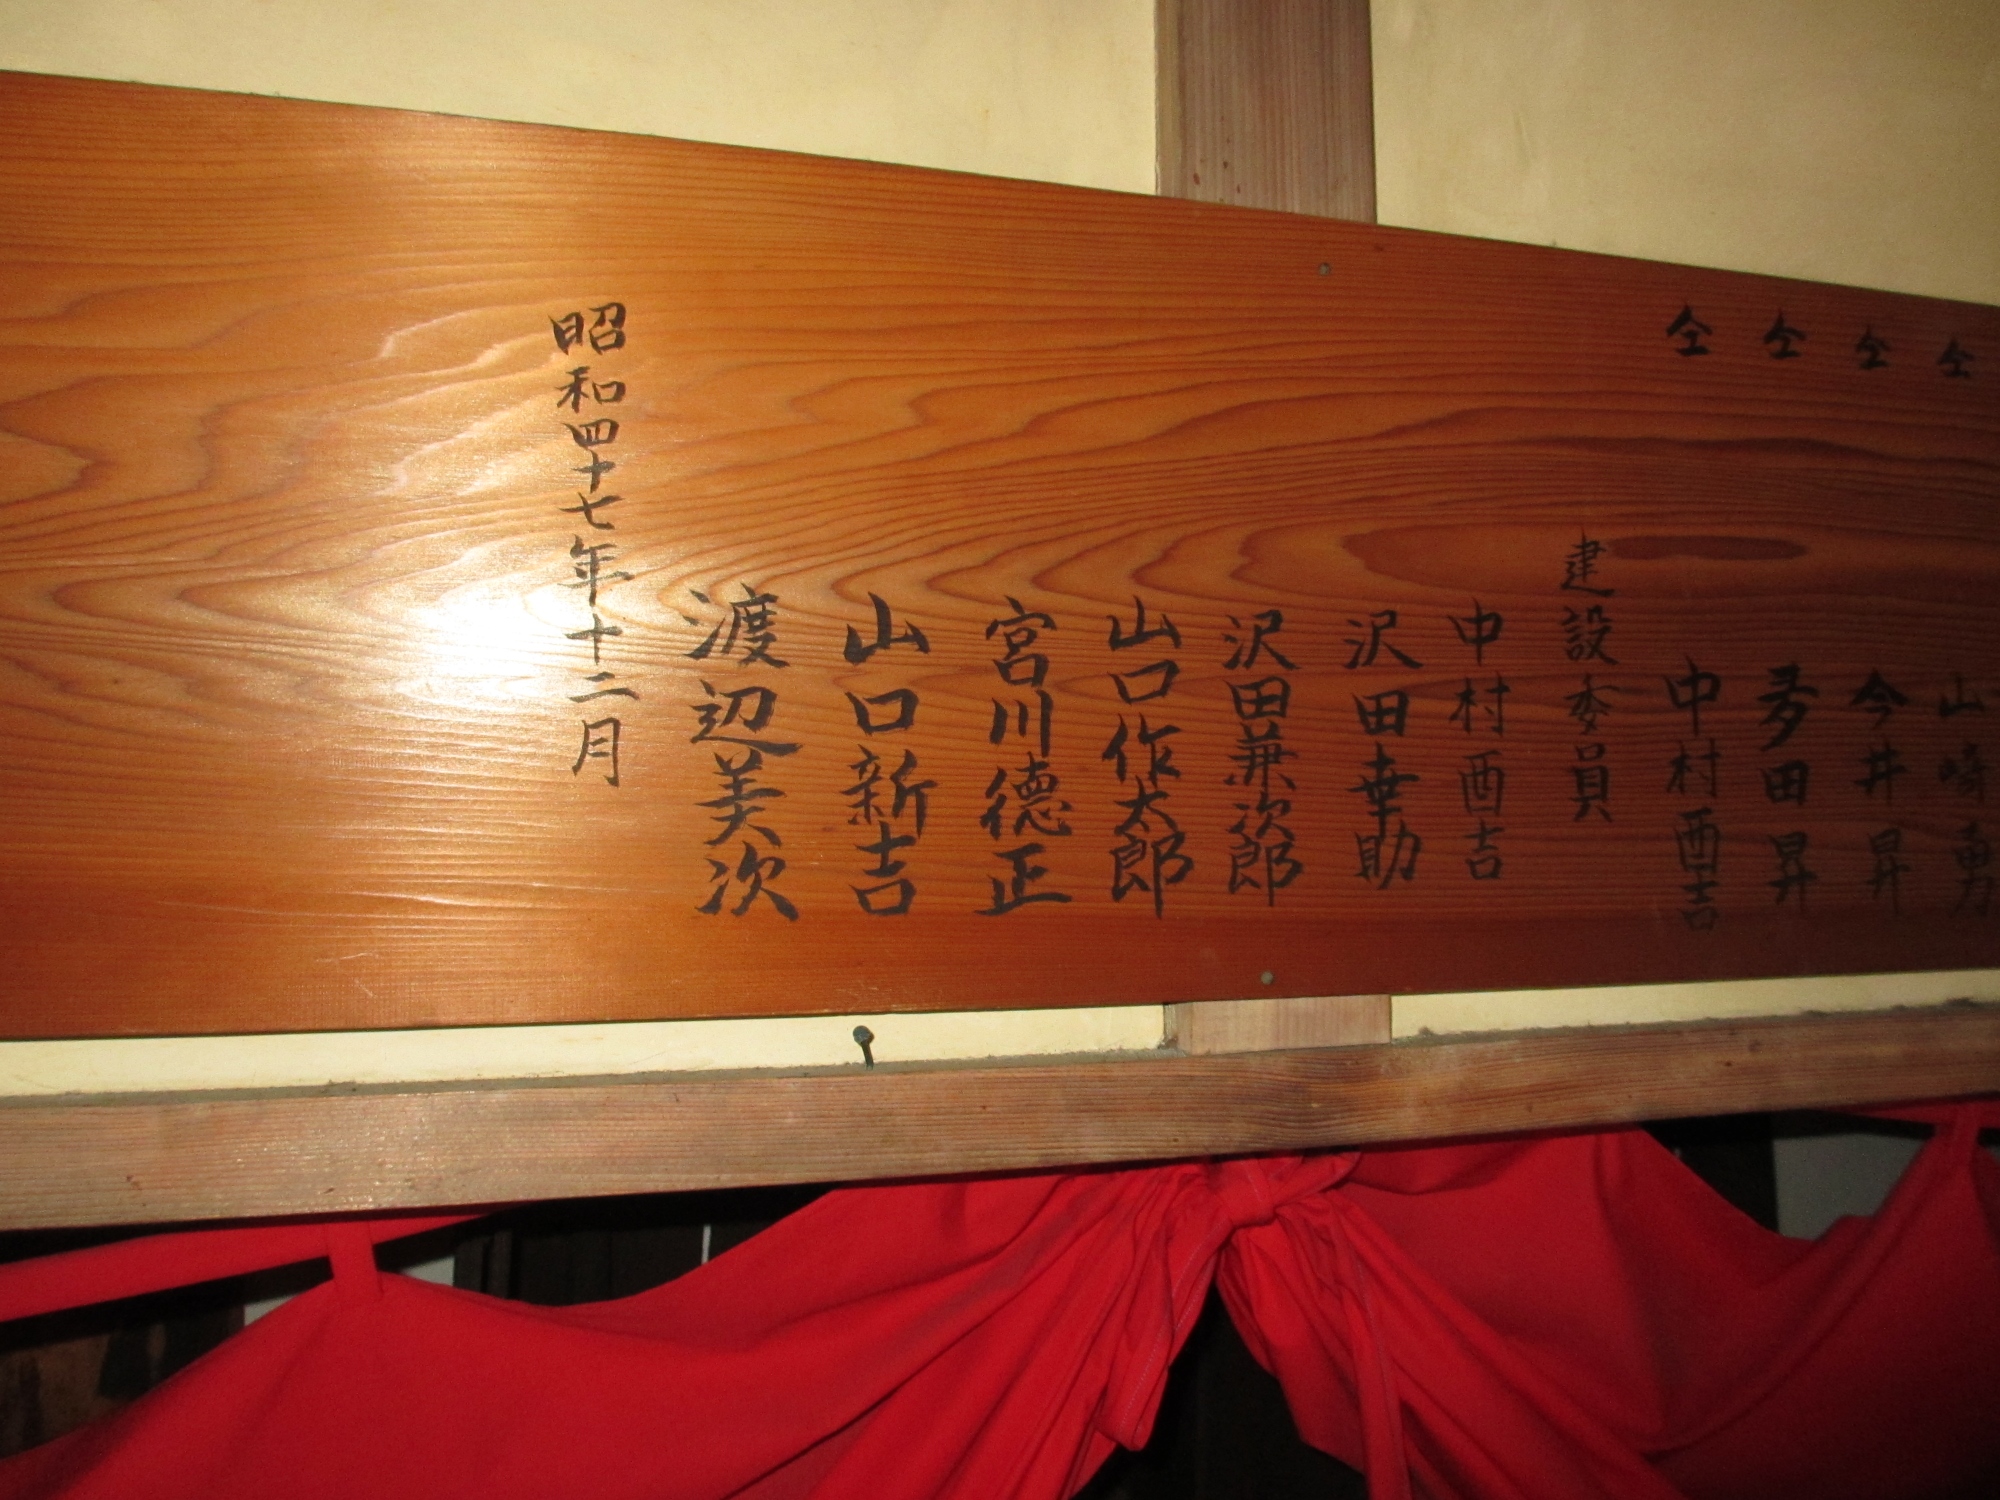 仝 山崎勇
仝 今井昇
仝 多田昇
仝 中村酉吉
建設委員
中村酉吉
沢田幸助
沢田兼次郎
山口作太郎
宮川徳正
山口新吉
渡辺美次
昭和四十七年十二月